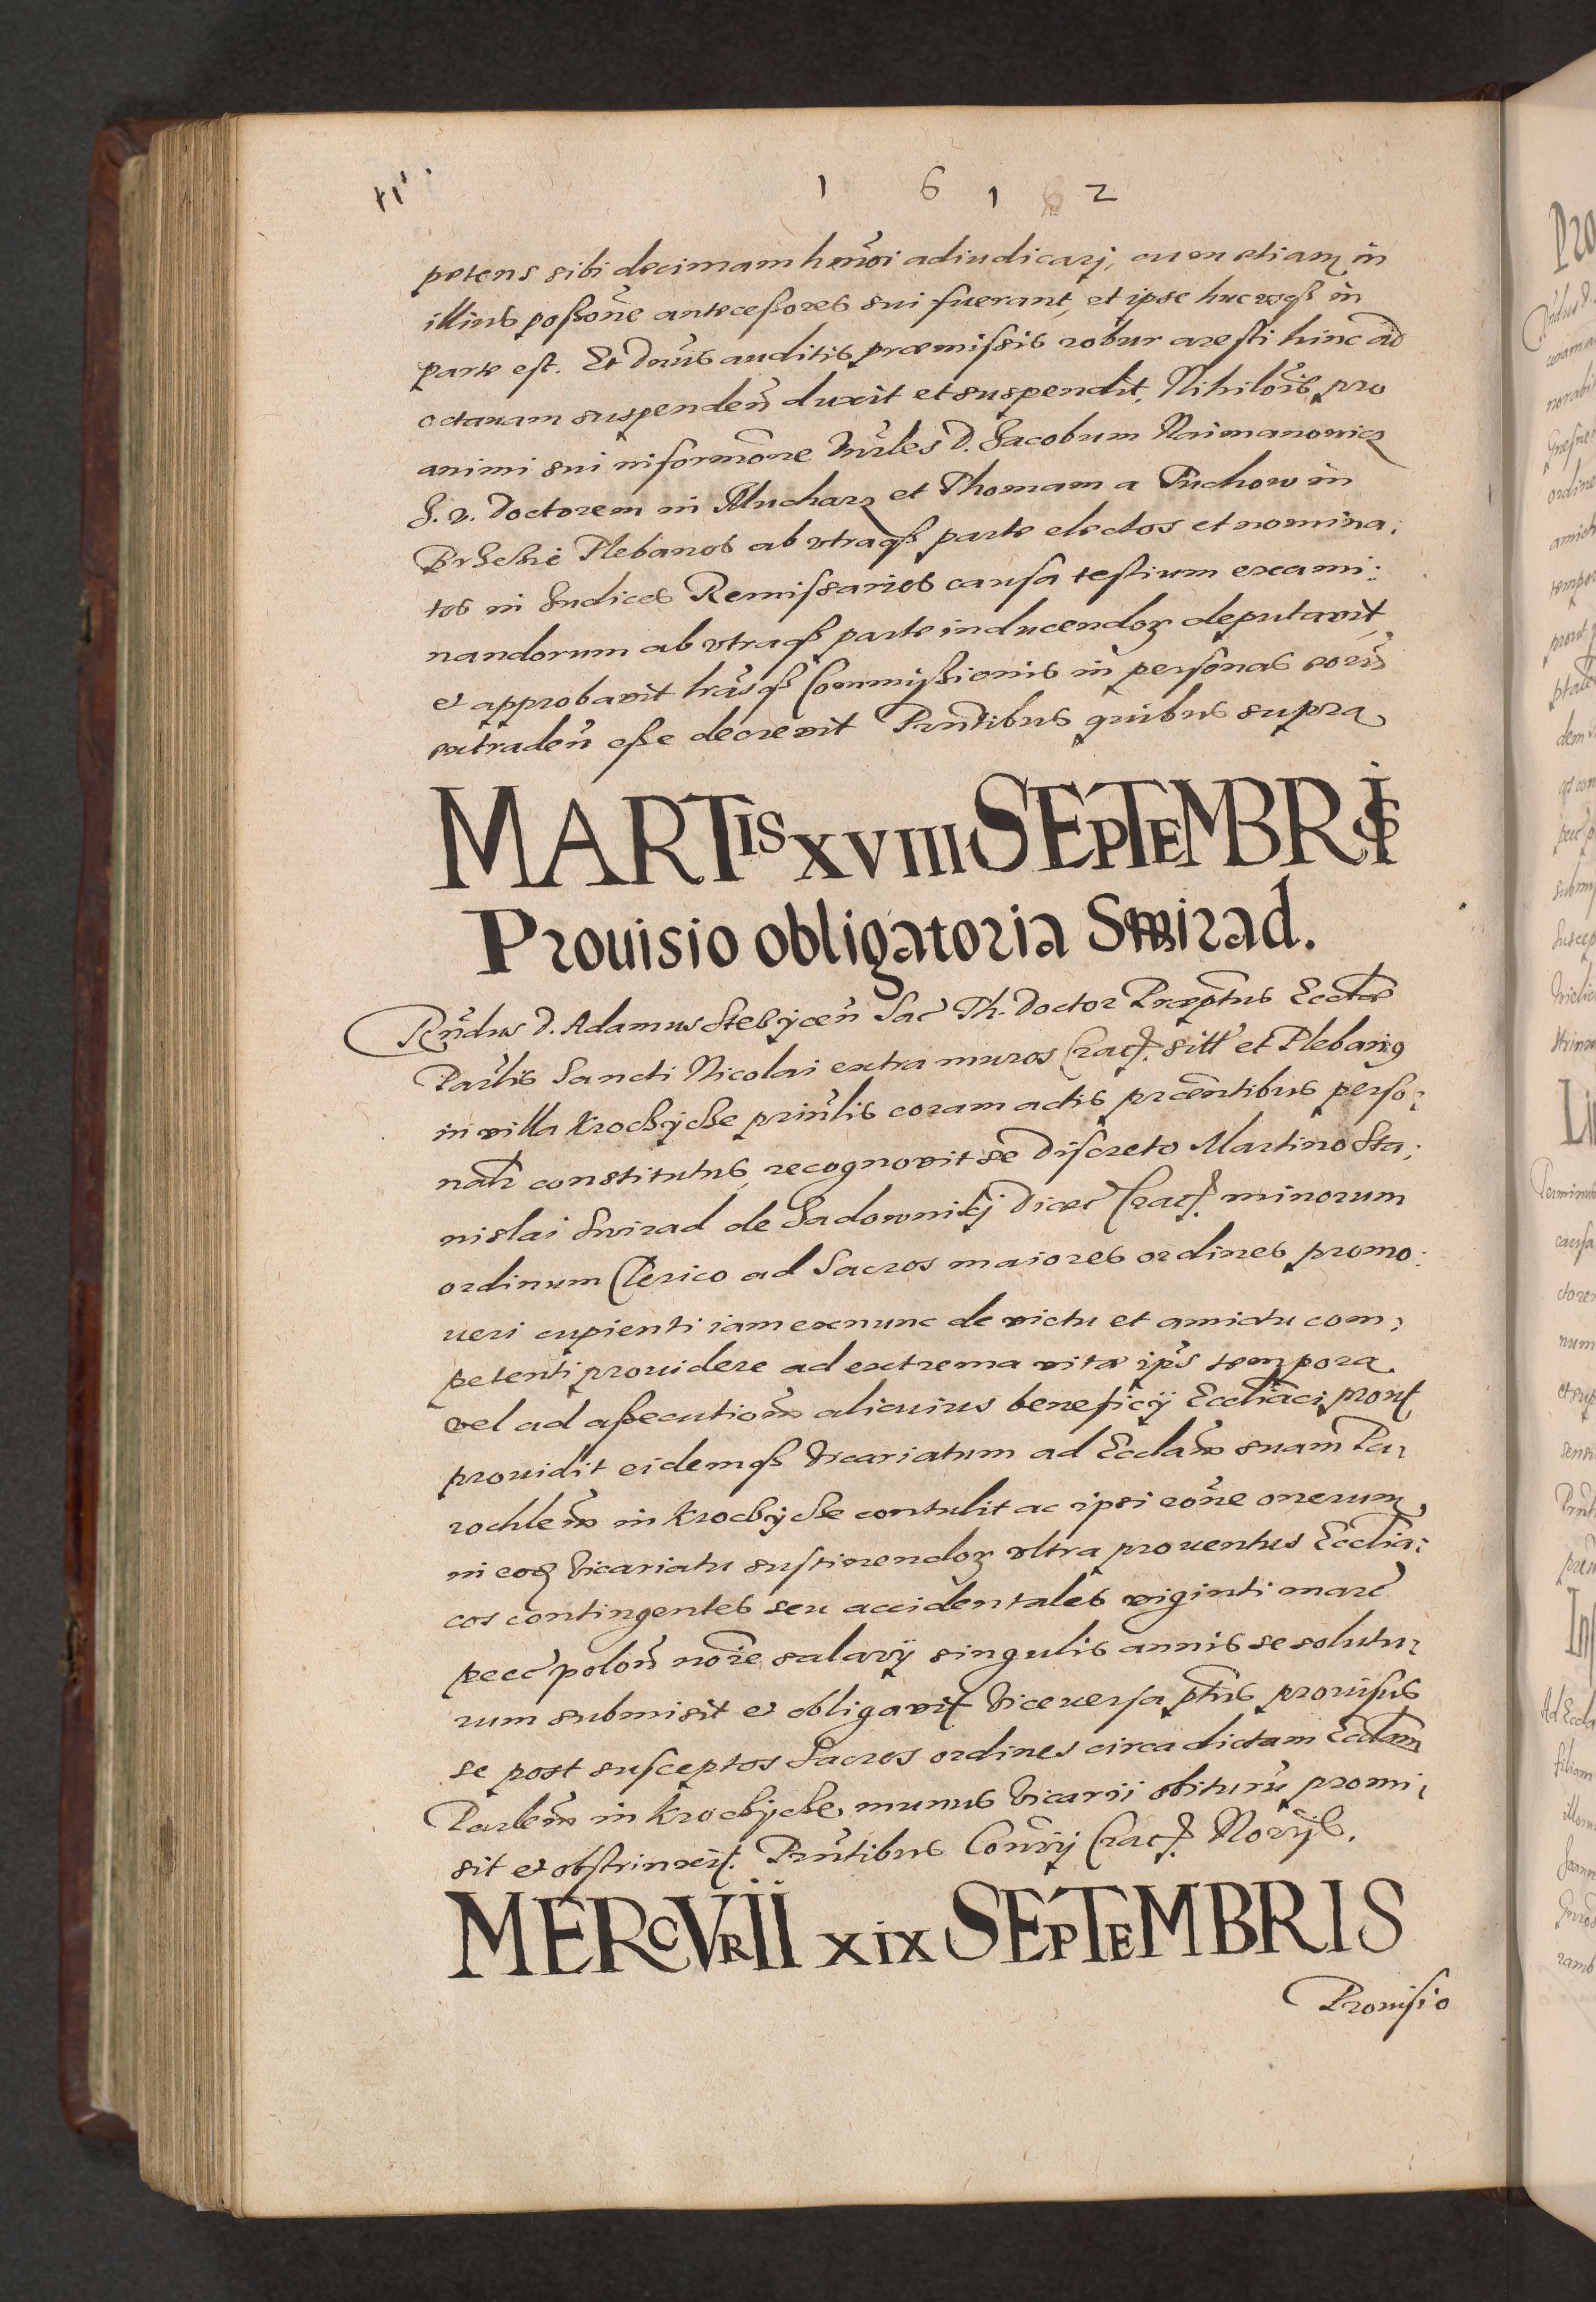 1 6 1 2
petens sibi decimam hmõi adiudicarj, cum etiam in
illius poßoñe anteceßores sui fuerant, et ipse hucusqß in
parte est. Et Dnũs auditis præmissis robur aresti hinc ad
octauam suspendeñ duxit et suspendit. Nihilõis pro
animi sui informõne Vnr̃les D. Jacobum Naimanowicz
J. V. Doctorem in Mucharz et Thomam a Tuchow in
Plebanos ab vtraqß parte electos et nomina:
tos in Judices Remissarios causa testium exami:
nandorum ab vtraqß parte inducendoꝝ deputauit
et approbauit lr̃asqß Commißionis in personas eorũ
extradeñ eße decreuit Pr̃ntibus quibus supra
MARTIS XVIII SEPTEMBRIS
Prouisio obligatoria Swirad.
Rñdus D. Adamus Sac̃ Th. Doctor Præp̃tus Eccl̃æ
Par̃lis Sancti Nicolai extra muros Crac̃. sitæ et Plebanus
in villa priñlis coram actis præñtibus perso:
nalr̃ constitutus, recognouit se Discreto Martino Sta:
nislai Swirad de Sadownikj Diæc̃ Crac̃. minorum
ordinum Clerico ad Sacros maiores ordines promo:
ueri cupienti iam ex nunc de victu et amictu com:
petenti prouidere ad extrema vitæ ip̃s tempora
vel ad aßecutioñem alicuius beneficij Eccl̃iaci prout
prouidit eidemqß Vicariatum ad Eccl̃am suam Pa:
rochleм̃ in contulit ac ipsi rõne onerum
in eoꝝ Vicariatu sustinendoꝝ vltra prouentus Eccl̃ia:
cos contingentes seu accidentales viginti marc̃
pec̃ poloñ nõie salarij singulis annis se solutu:
rum submisit et obligauit Viceuersa p̃tus prouisus
se post susceptos Sacros ordines circa dictam Eccl̃am
Parleм̃ in munus Vicarij obiturũ promi:
sit et obstrinxit. Pr̃ntibus Consrij Crac̃. Norijs.
MERCVRII XIX SEPTEMBRIS
Prouisio